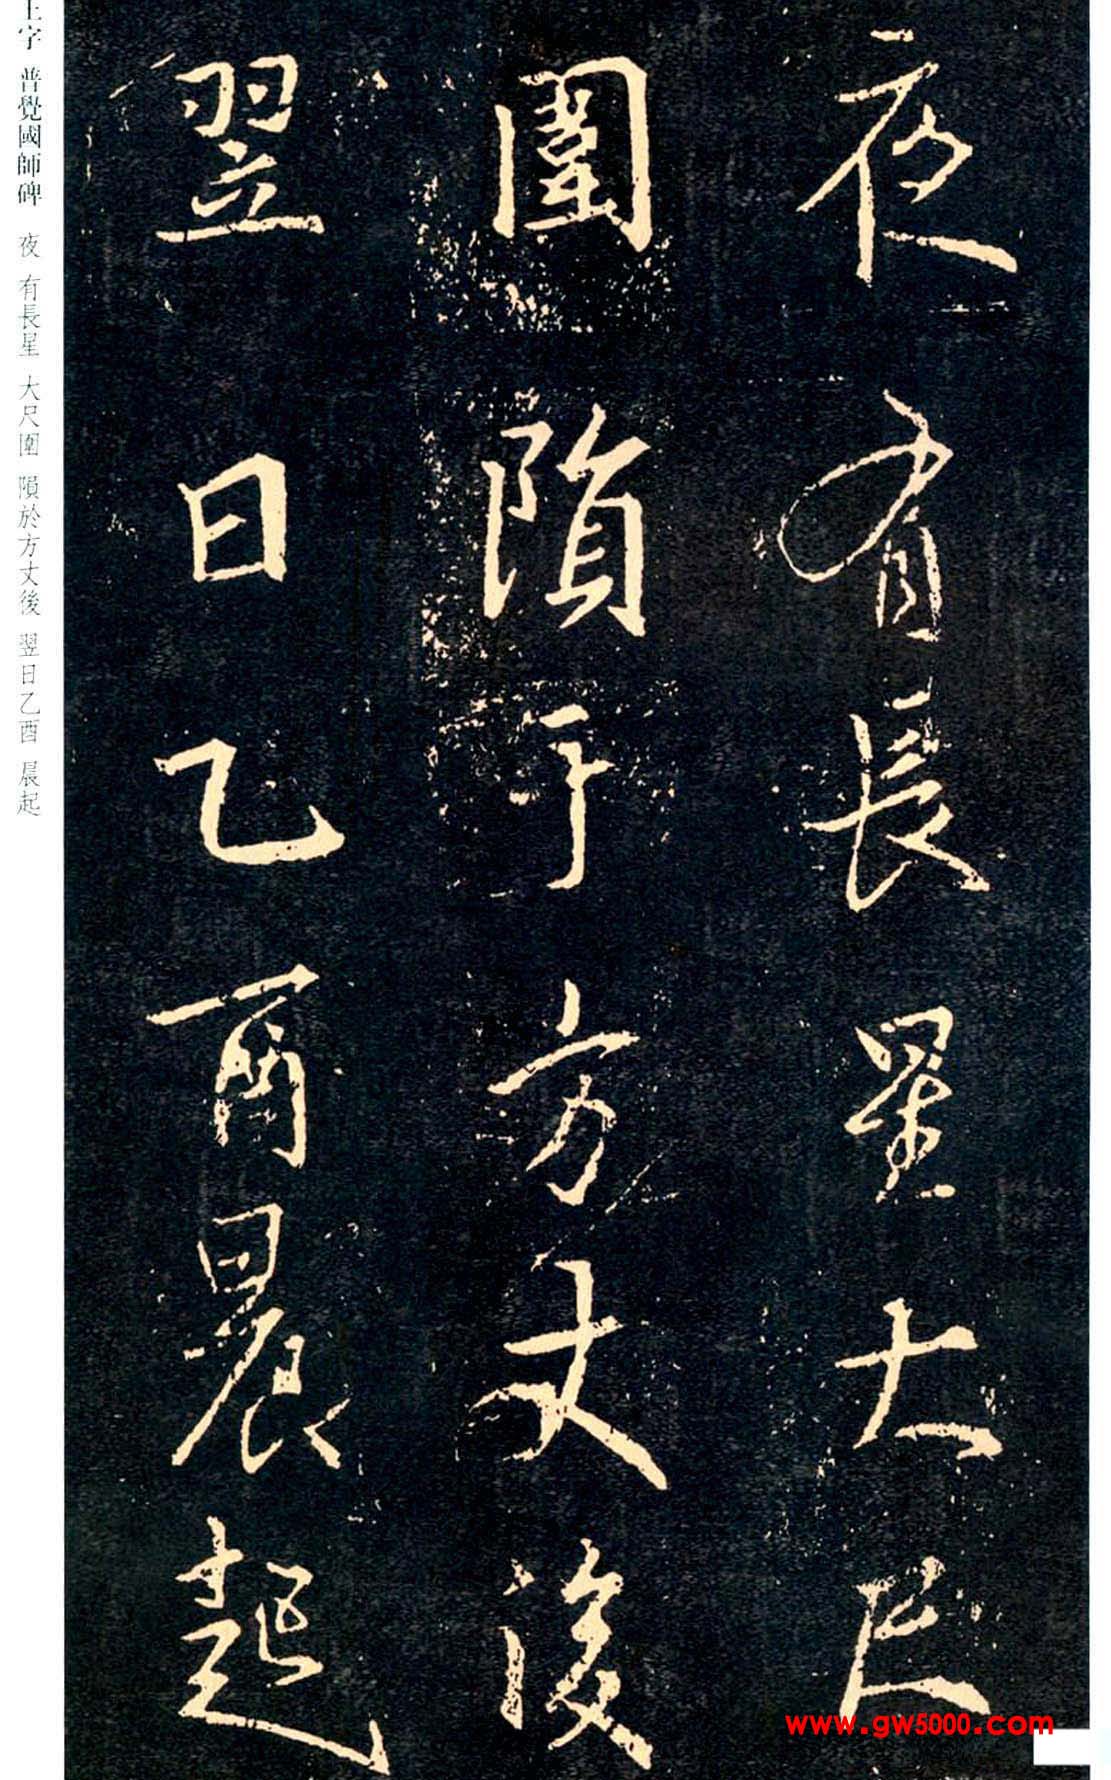 夜有長星大尺
圍隕于方丈後
翌日乙酉晨起
王字 普覺國師碑 夜 有長星 大尺圍 隕於方丈後 翌日乙酉 晨起
www.gw5000.com